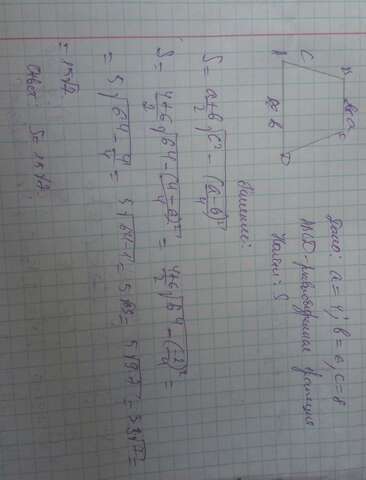 Дано: a=4; b=6, c=8
ABCD - равнобедренная трапеция
Найти: S
B a C
c
A b D
Решение:
S = a+b/2 √c² - (a-b)²/4
S = 4+6/2 √64 - (4-6)²/4 = 4+6/2 √64 - (-2)²/4 =
= 5√64 - 4/4 = 5√64-1 = 5√63 = 5√9·7 = 5·3√7 =
= 15√7
Ответ S = 15√7.